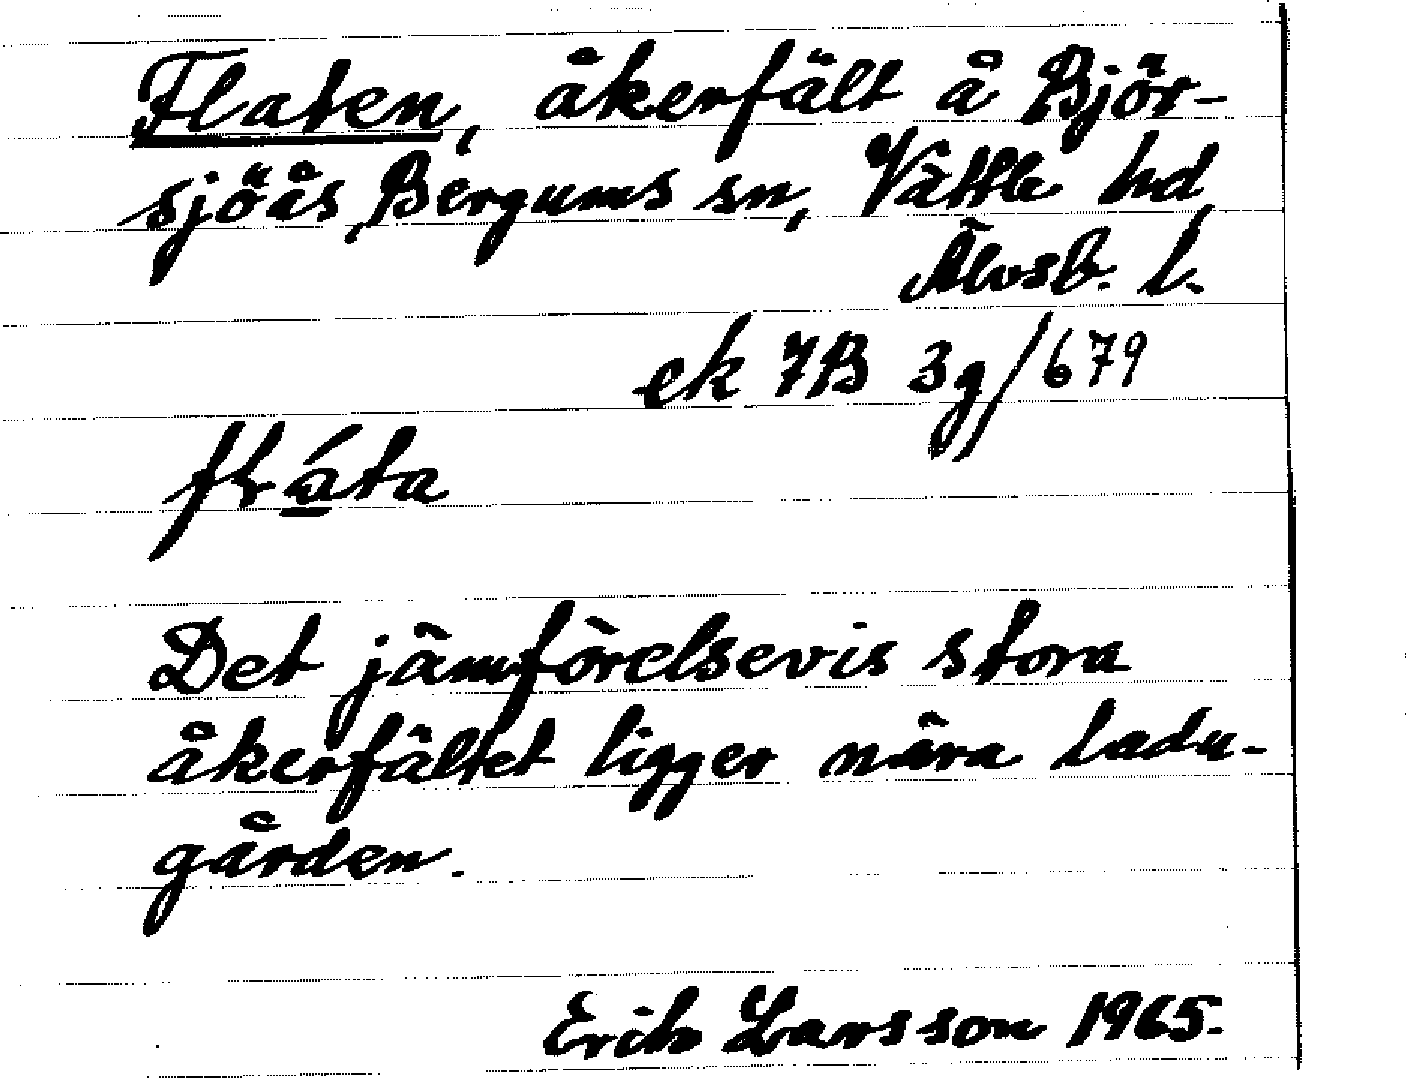 Flaten, åkerfält å Björ-
sjöås, Bergums sn, Vättle hd
Älvsb. l.
ek 7B 3g/679
flá̱ta
Det jämförelsevis stora
åkerfältet ligger nära ladu-
gården.
Erik Larsson 1965.